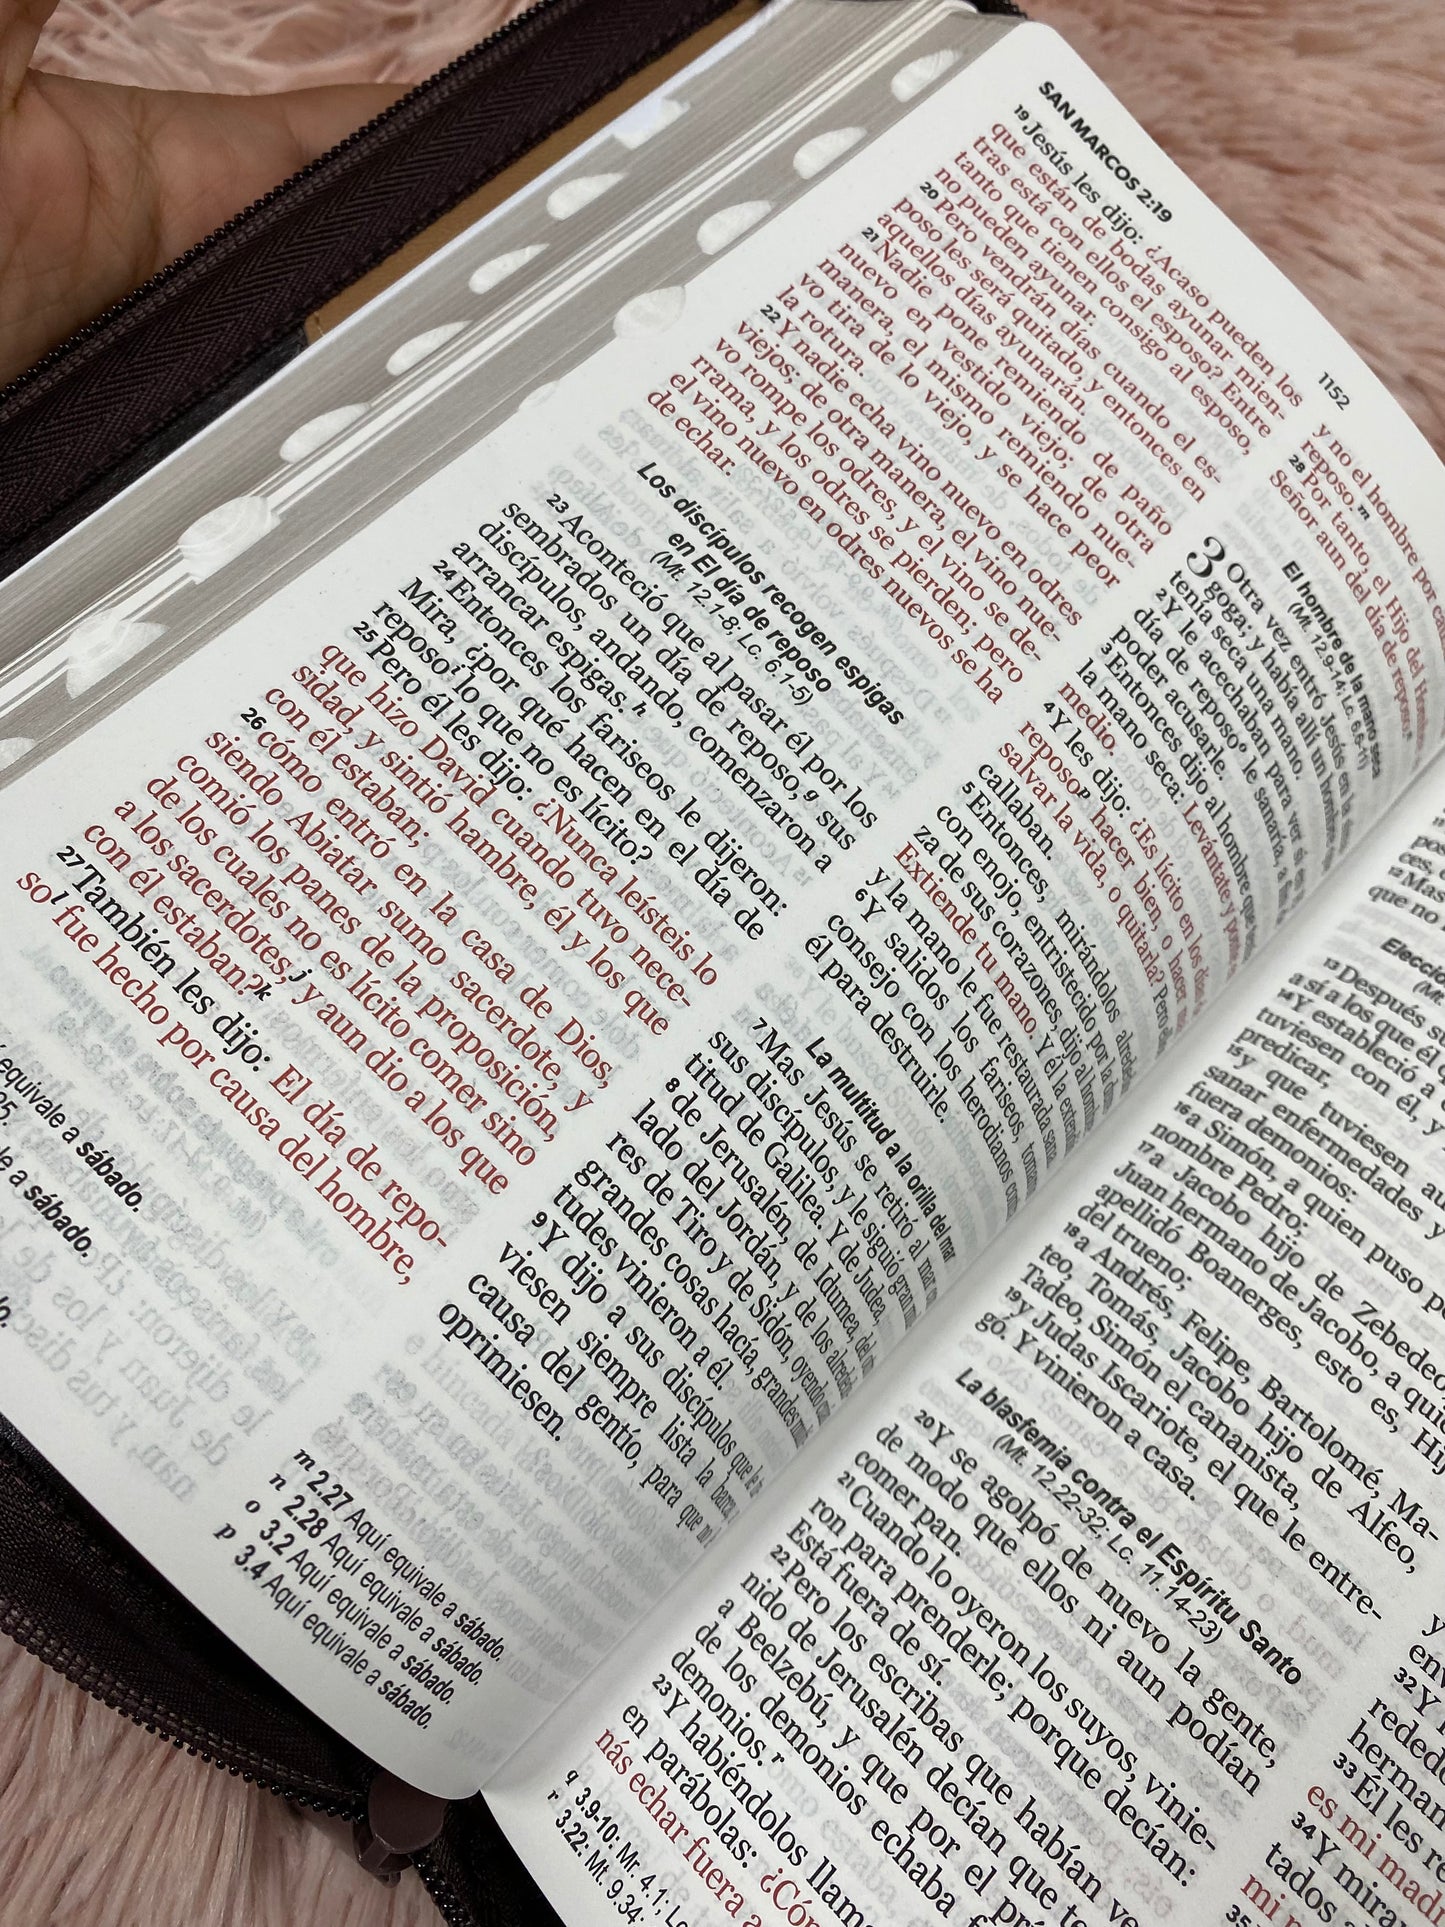 SAN MARCOS 2:19
1152
19 Jesús les dijo: ¿Acaso pueden los
que están de bodas ayunar mien-
tras está con ellos el esposo? Entre
tanto que tienen consigo al esposo,
no pueden ayunar.
20 Pero vendrán días cuando el es-
poso les será quitado, y entonces en
aquellos días ayunarán.
21 Nadie pone remiendo de paño
nuevo en vestido viejo; de otra
manera, el mismo remiendo nue-
vo tira de lo viejo, y se hace peor
la rotura.
22 Y nadie echa vino nuevo en odres
viejos; de otra manera, el vino nue-
vo rompe los odres, y el vino se de-
rrama, y los odres se pierden; pero
el vino nuevo en odres nuevos se ha
de echar.
Los discípulos recogen espigas
en El día de reposo
(Mt. 12.1-8; Lc. 6.1-5)
23 Aconteció que al pasar él por los
sembrados un día de reposo,g sus
discípulos, andando, comenzaron a
arrancar espigas.h
24 Entonces los fariseos le dijeron:
Mira, ¿por qué hacen en el día de
reposoi lo que no es lícito?
25 Pero él les dijo: ¿Nunca leísteis lo
que hizo David cuando tuvo nece-
sidad, y sintió hambre, él y los que
con él estaban;
26 cómo entró en la casa de Dios,
siendo Abiatar sumo sacerdote, y
comió los panes de la proposición,
de los cuales no es lícito comer sino
a los sacerdotes,j y aun dio a los que
con él estaban?k
27 También les dijo: El día de repo-
sol fue hecho por causa del hombre,
equivale a sábado.
25.
le a sábado.
y no el hombre por
reposo.m
28 Por tanto, el Hijo del Hombre
Señor aun del día de reposo.n
El hombre de la mano seca
(Mt. 12.9-14; Lc. 6.6-11)
3 Otra vez entró Jesús en la
goga; y había allí un hombre que
tenía seca una mano.
2 Y le acechaban para ver si en
día de reposoo le sanaría, a fin
poder acusarle.
3 Entonces dijo al hombre que
la mano seca: Levántate y ponte
medio.
4 Y les dijo: ¿Es lícito en los días
reposop hacer bien, o hacer mal
salvar la vida, o quitarla? Pero
callaban.
5 Entonces, mirándolos alrededor
con enojo, entristecido por la
za de sus corazones, dijo al hombre
Extiende tu mano. Y él la extendió
y la mano le fue restaurada sana
6 Y salidos los fariseos, tomaron
consejo con los herodianos
él para destruirle.
La multitud a la orilla del mar
7 Mas Jesús se retiró al mar con
sus discípulos, y le siguió gran
titud de Galilea. Y de Judea,
8 de Jerusalén, de Idumea, del
lado del Jordán, y de los
res de Tiro y de Sidón, oyendo
grandes cosas hacía, grandes
tudes vinieron a él.
9 Y dijo a sus discípulos que le
viesen siempre lista la barca,
causa del gentío, para que no
oprimiesen.
m 2.27 Aquí equivale a sábado.
n 2.28 Aquí equivale a sábado.
o 3.2 Aquí equivale a sábado.
p 3.4 Aquí equivale a sábado.
12 Mas
que no
13 Después
a sí a los que él
14 Y estableció a
tuviesen con él, y
predicar,
15 y que tuviesen
sanar enfermedades y
fuera demonios:
16 a Simón, a quien puso
nombre Pedro;
17 a Jacobo hijo de Zebedeo,
Juan hermano de Jacobo, a
apellidó Boanerges, esto es,
del trueno;
18 a Andrés, Felipe, Bartolomé, Ma-
teo, Tomás, Jacobo hijo de Alfeo,
Tadeo, Simón el cananista,
19 y Judas Iscariote, el que le entre-
gó. Y vinieron a casa.
La blasfemia contra el Espíritu Santo
(Mt. 12.22-32; Lc. 11.14-23)
20 Y se agolpó de nuevo la gente,
de modo que ellos ni aun podían
comer pan.
21 Cuando lo oyeron los suyos, vinie-
ron para prenderle; porque decían:
Está fuera de sí.
22 Pero los escribas que habían ve-
nido de Jerusalén decían que
a Beelzebú, y que por el
de los demonios echaba
demonios.r
23 Y habiéndolos
en parábolas:
nás echar fuera a
q 3.9-10: Mr. 4.1;
r 3.22: Mt. 9.34;
32 Y
33 Él les
es mi
34 Y
tados
mi
35